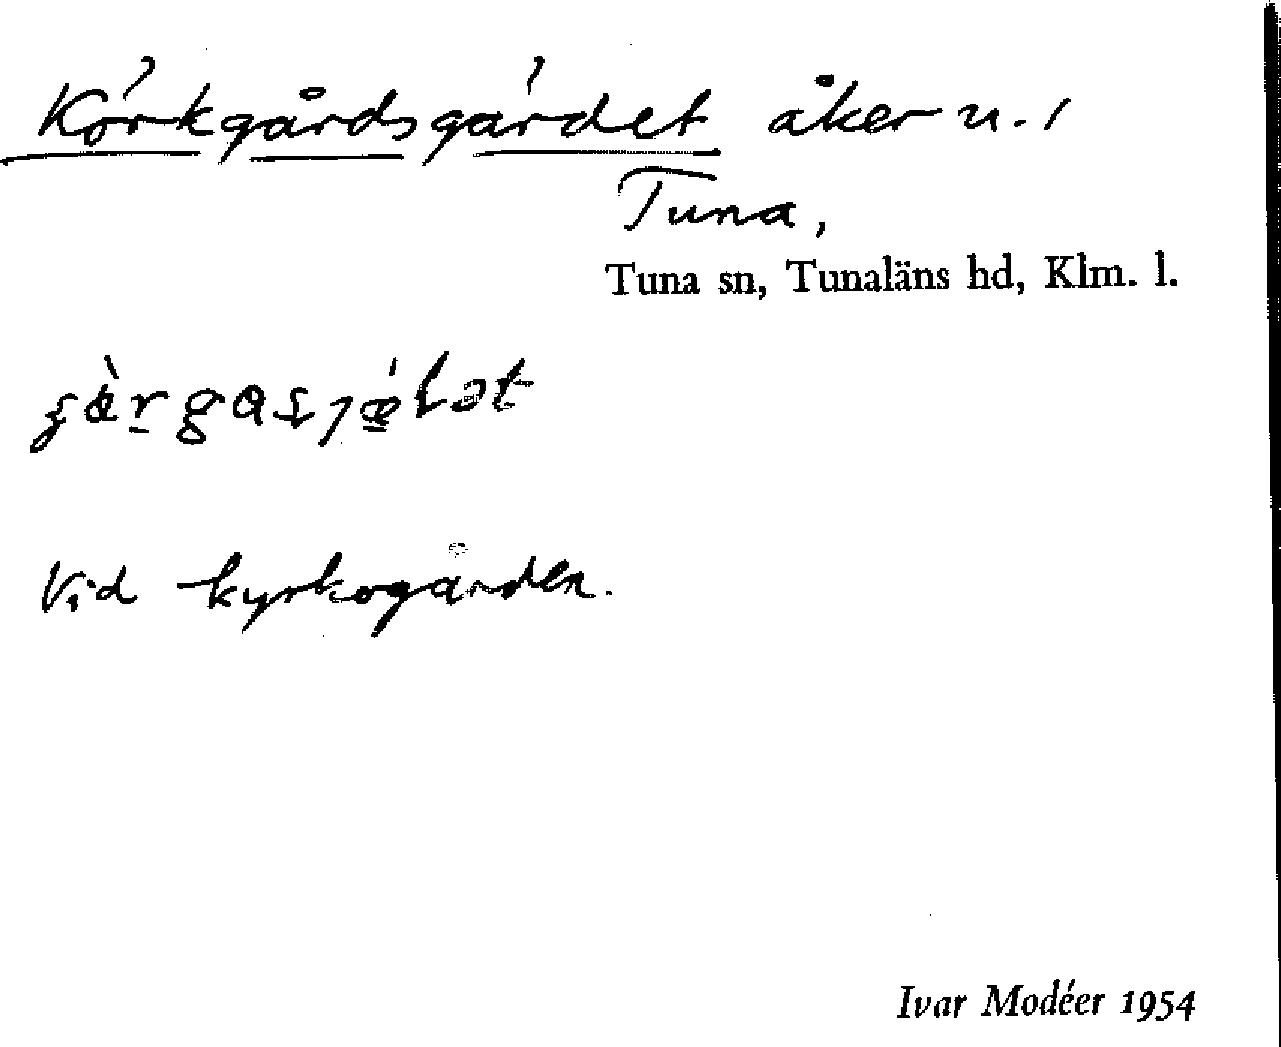 Körkgårdsgärdet åker u. 1
Tuna,
Tuna sn, Tunaläns hd, Klm. l.
Vid kyrkogården.
Ivar Modéer 1954